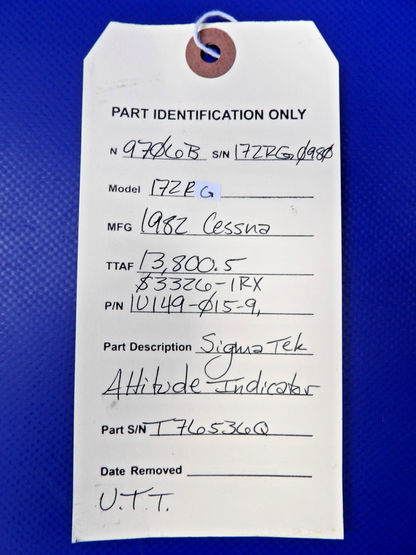 PART IDENTIFICATION ONLY
N 97Ø6B S/N 172RGØ98Ø
Model 172RG
MFG 1982 Cessna
TTAF 13,800.5
S3326-1RX
P/N 1U149-Ø15-9,
Part Description SigmaTek
Attitude Indicator
Part S/N T76536Q
Date Removed
U.T.T.